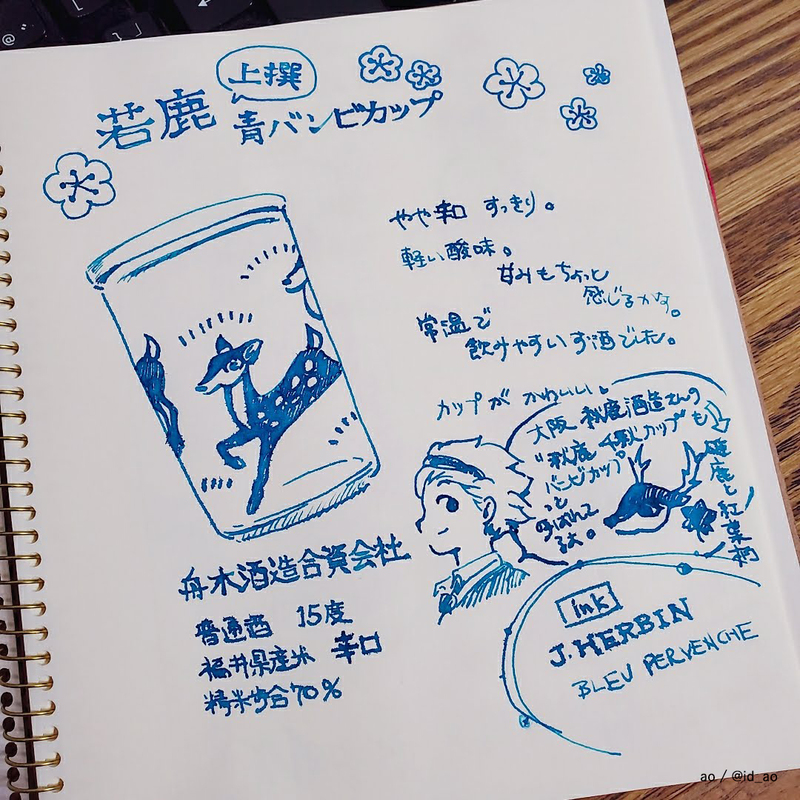 上撰
若鹿 青バンビカップ
やや辛口 すっきり。
軽い酸味。
甘みもちょっと
感じるかな。
常温で
飲みやすいお酒でした。
カップが かわいい。
大阪 秋鹿酒造さんの
"秋鹿 千秋カップ"も
バンビカップ
って
よばれて
るよ。
雄鹿と紅葉柄
舟木酒造合資会社
普通酒 15度
福井県産米 辛口
精米歩合70%
ink
J. HERBIN
BLEU PERVENCHE
ao / @id_ao